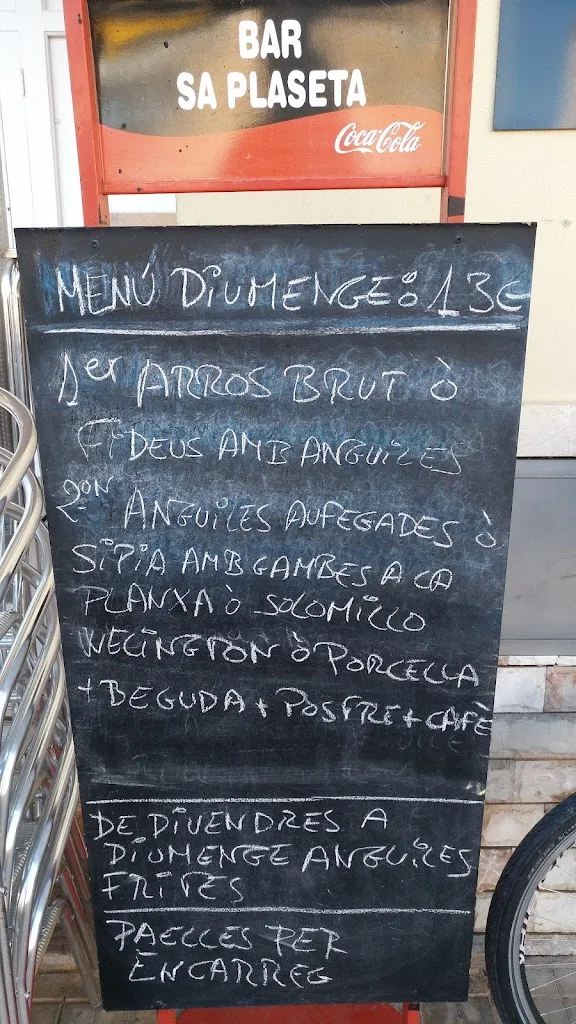 BAR
SA PLASETA
Coca-Cola
MENÚ DIUMENGE: 13€
1er ARROS BRUT Ò
FIDEUS AMB ANGUILES
2ON ANGUILES AUFEGADES Ò
SIPIA AMB GAMBES A LA
PLANXA Ò SOLOMILLO
WELINGTON Ò PORCELLA
+ BEGUDA + POSTRE + CAFÈ
DE DIVENDRES A
DIUMENGE ANGUILES
FRITES
PAELLES PER
ENCARREG